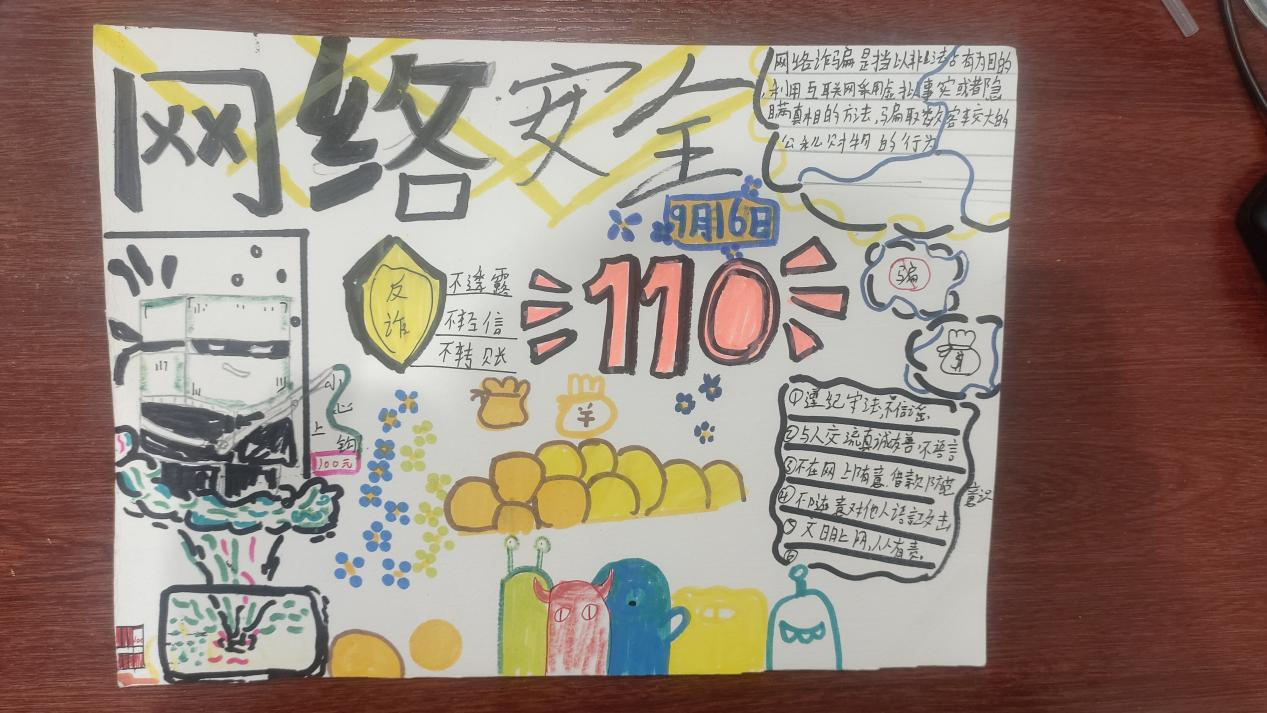 网络安全
网络诈骗是指以非法占有为目的
利用互联网采用虚拟事实或者隐
瞒真相的方法,骗取数额较大的
公私财物的行为
9月16日
反诈
不透露
不轻信
不转账
110
骗
小心上钩
100元
①遵纪守法,不信谣.
②与人交流真诚友善.不
③不在网上随意借款,防范意识
④不随意对他人语言攻击
⑤ 人人有责.
⑥